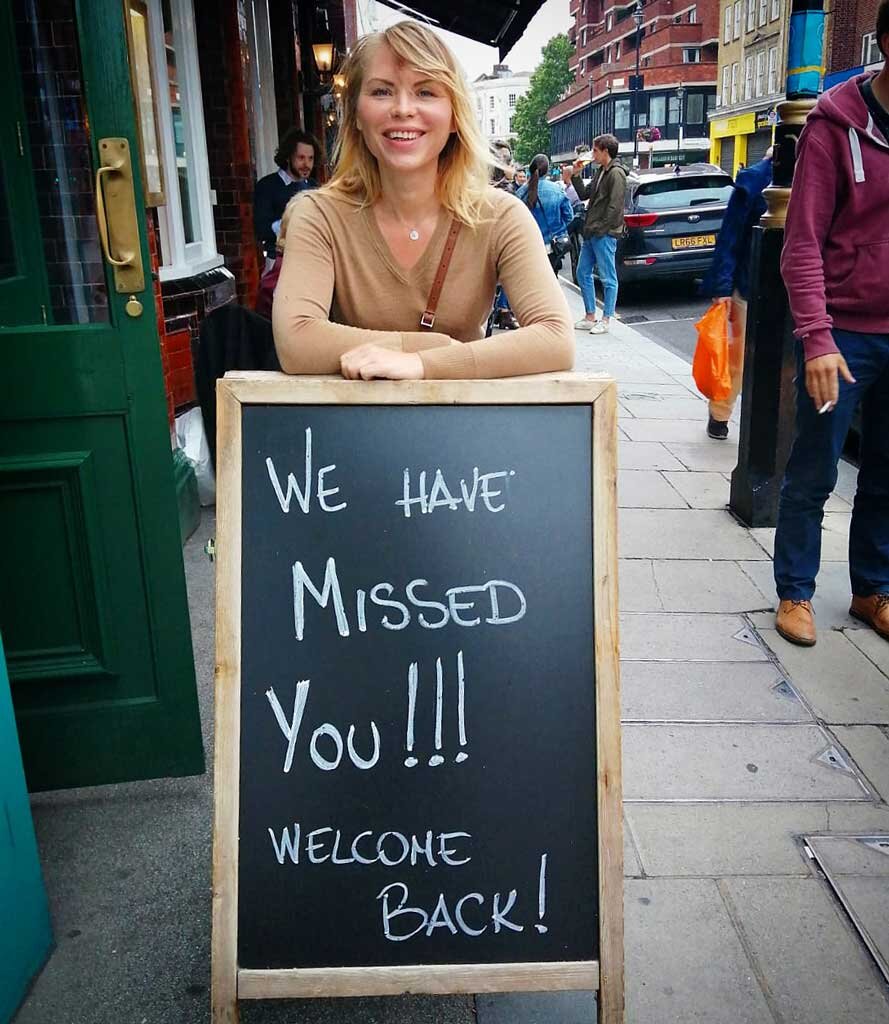 LR66 FXL
WE HAVE
MISSED
YOU!!!
WELCOME
BACK!